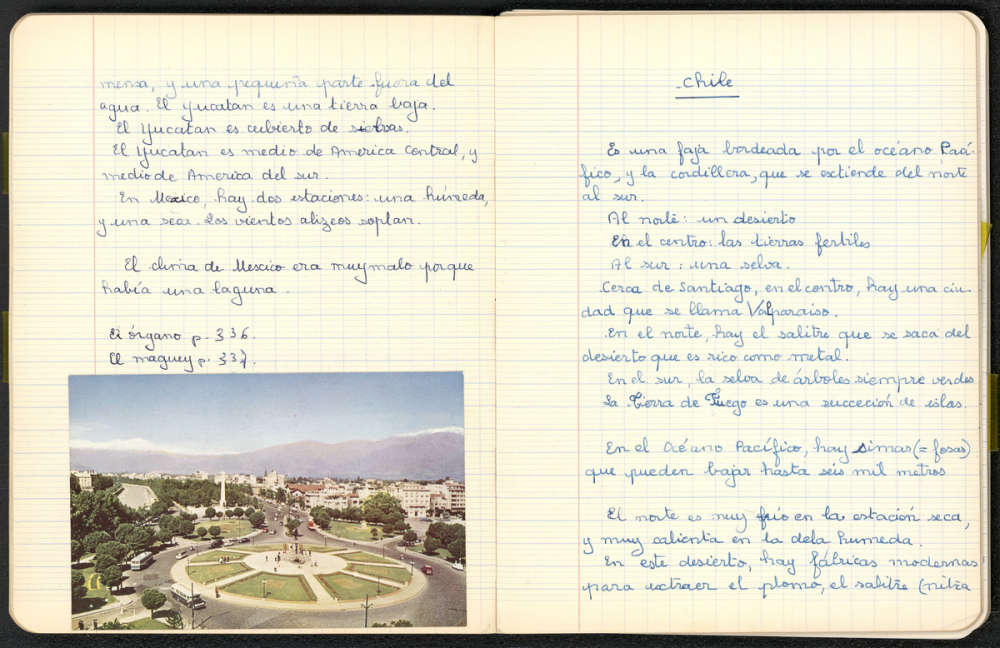 mensa, y una pequeña parte fuera del
agua. El yucatan es una tierra baja.
El Yucatan es cubierto de selvas.
El Yucatan es medio de America Central, y
medio de America del sur.
En Mexico, hay dos estaciones: una húmeda,
y una seca. Los vientos alizeos soplan.
El clima de Mexico era muy malo porque
había una laguna.
El órgano p. 336.
El maguey p. 337.
Chile
Es una faja bordeada por el océano Pací-
fico, y la cordillera, que se extiende del norte
al sur.
Al norte: un desierto
En el centro: las tierras fertiles
Al sur: una selva.
Cerca de Santiago, en el centro, hay una ciu-
dad que se llama Valparaiso.
En el norte, hay el salitre que se saca del
desierto que es rico como metal.
En el sur, la selva de árboles siempre verdes
La Tierra de Fuego es una succeción de islas.
En el Océano Pacífico, hay simas (= fosas)
que pueden bajar hasta séis mil metros
El norte es muy frio en la estación seca,
y muy calienta en la dela humeda.
En este desierto, hay fábricas modernas
para extraer el plomo, el salitre (nitra